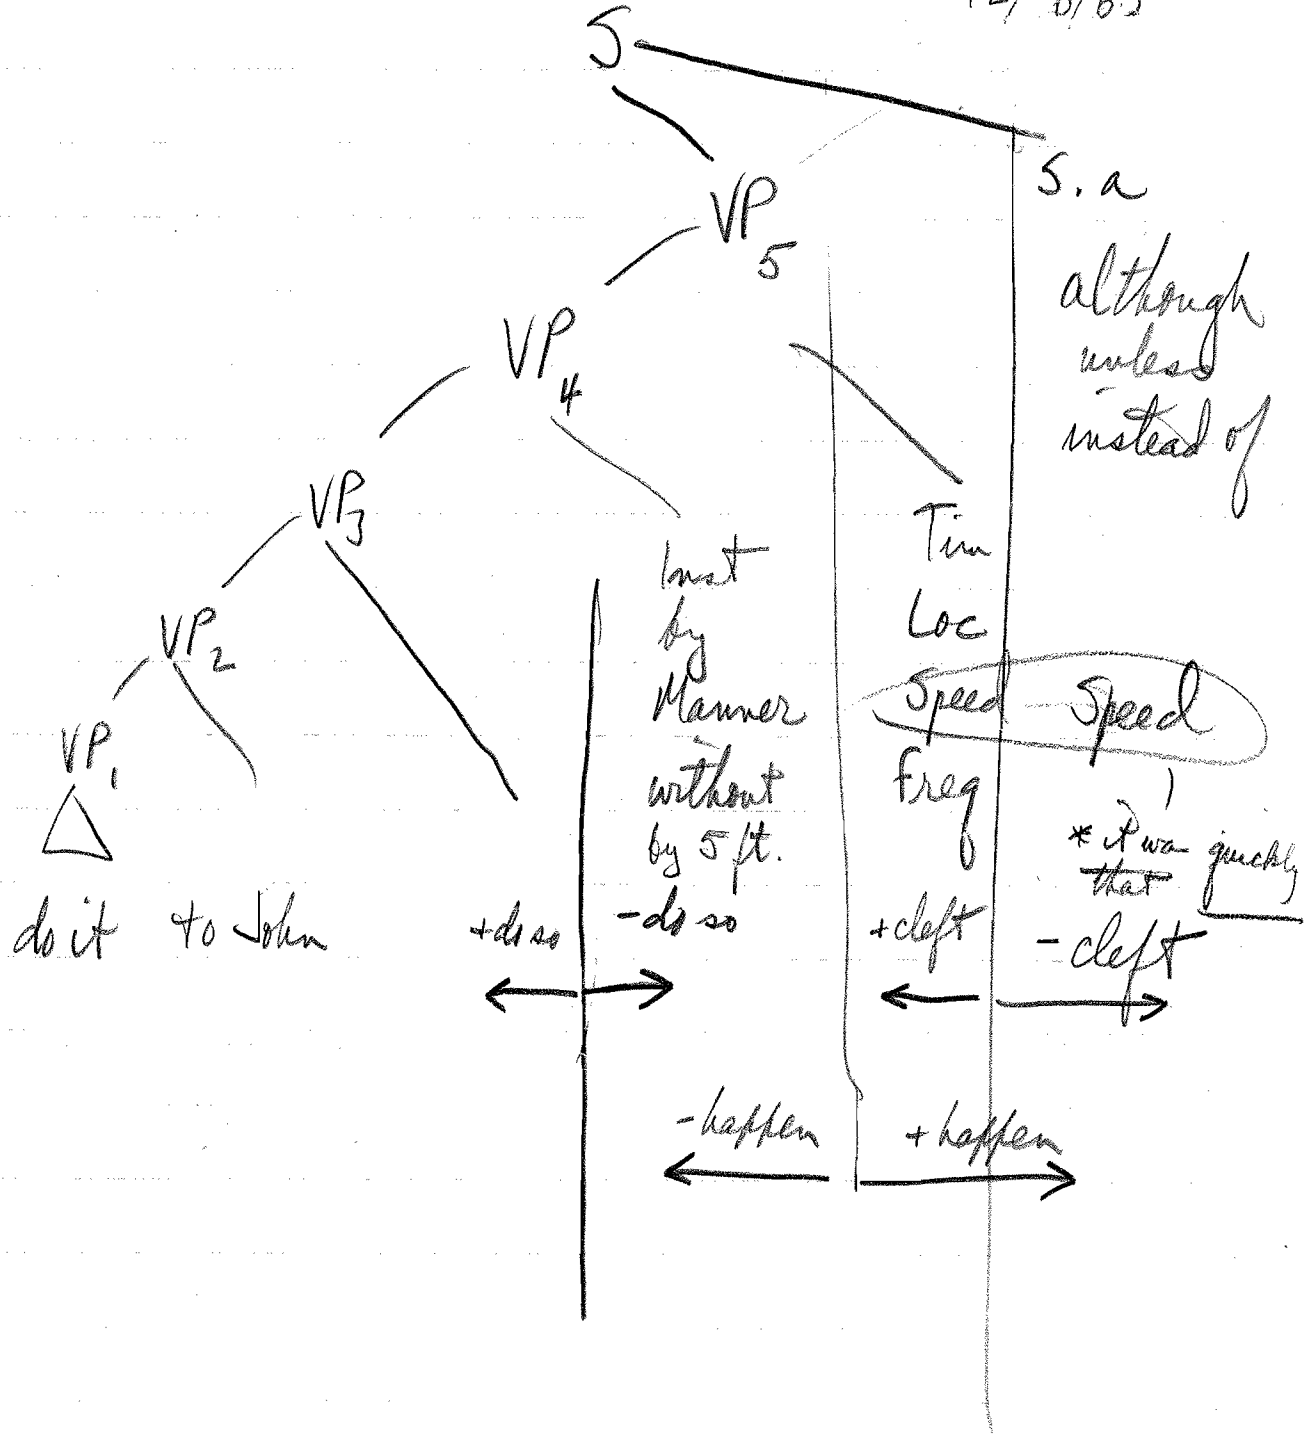 S
S.a
VP5
although
unless
instead of
VP4
VP3
Inst
by
Manner
without
by 5 ft.
Tim
Loc
Speed Speed
Freq
VP2
VP1
* it was quickly
that
do it to John
+do so -do so
+cleft -cleft
-happen +happen